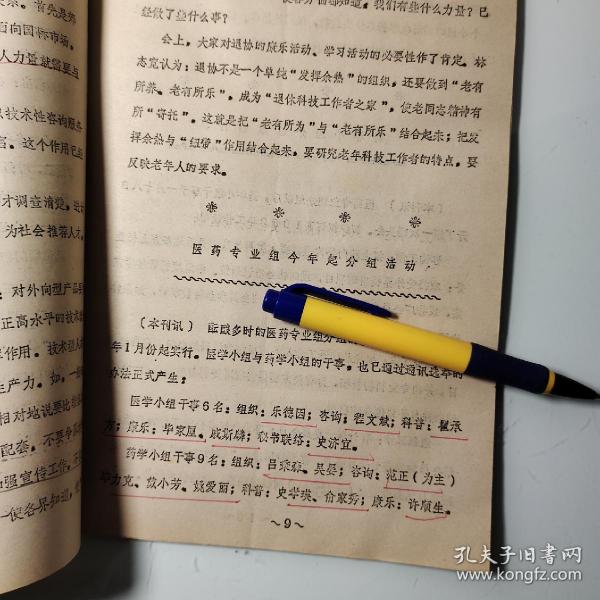 系。首先是郊
面向国标市场。
人力量就需要与
技术性咨询服务
言。这个作用已
才调查清楚。
为社会推荐人才，
对外向型产品
正高水平的技术
作用。技术
生产力。如，一
相对地说要比
配套。不要
加强宣传工作。
使各界知道，
都知道。我们有些什么力量？已
经做了些什么事？
会上，大家对退协的康乐活动、学习活动的必要性作了肯定。林
志宽认为：退协不是一个单纯“发挥余热”的组织，还要做到“老有
所养、老有所乐”，成为“退休科技工作者之家”，使老同志精神有
所“寄托”。这就是把“老有所为”与“老有所乐”结合起来；把发
挥余热与“纽带”作用结合起来。要研究老年科技工作者的特点，要
反映老年人的要求。
医药专业组今年起分组活动
〔本刊讯〕 酝酿多时的医药专业组分组
年1月份起实行。医学小组与药学小组的干事。也已通过通讯选举的
办法正式产生：
医学小组干事6名：组织：乐德园；咨询：程文斌；科普：瞿承
方；康乐：毕家凰、戚斯麟；秘书联络：史济宜。
药学小组干事9名：组织：吕荣森、吴晏；咨询：范正（为主）
力克、敖小芳、姚爱丽；科普：史 瑛、俞家秀；康乐：许顺生。
～9～
孔夫子旧书网
www.kongfz.com